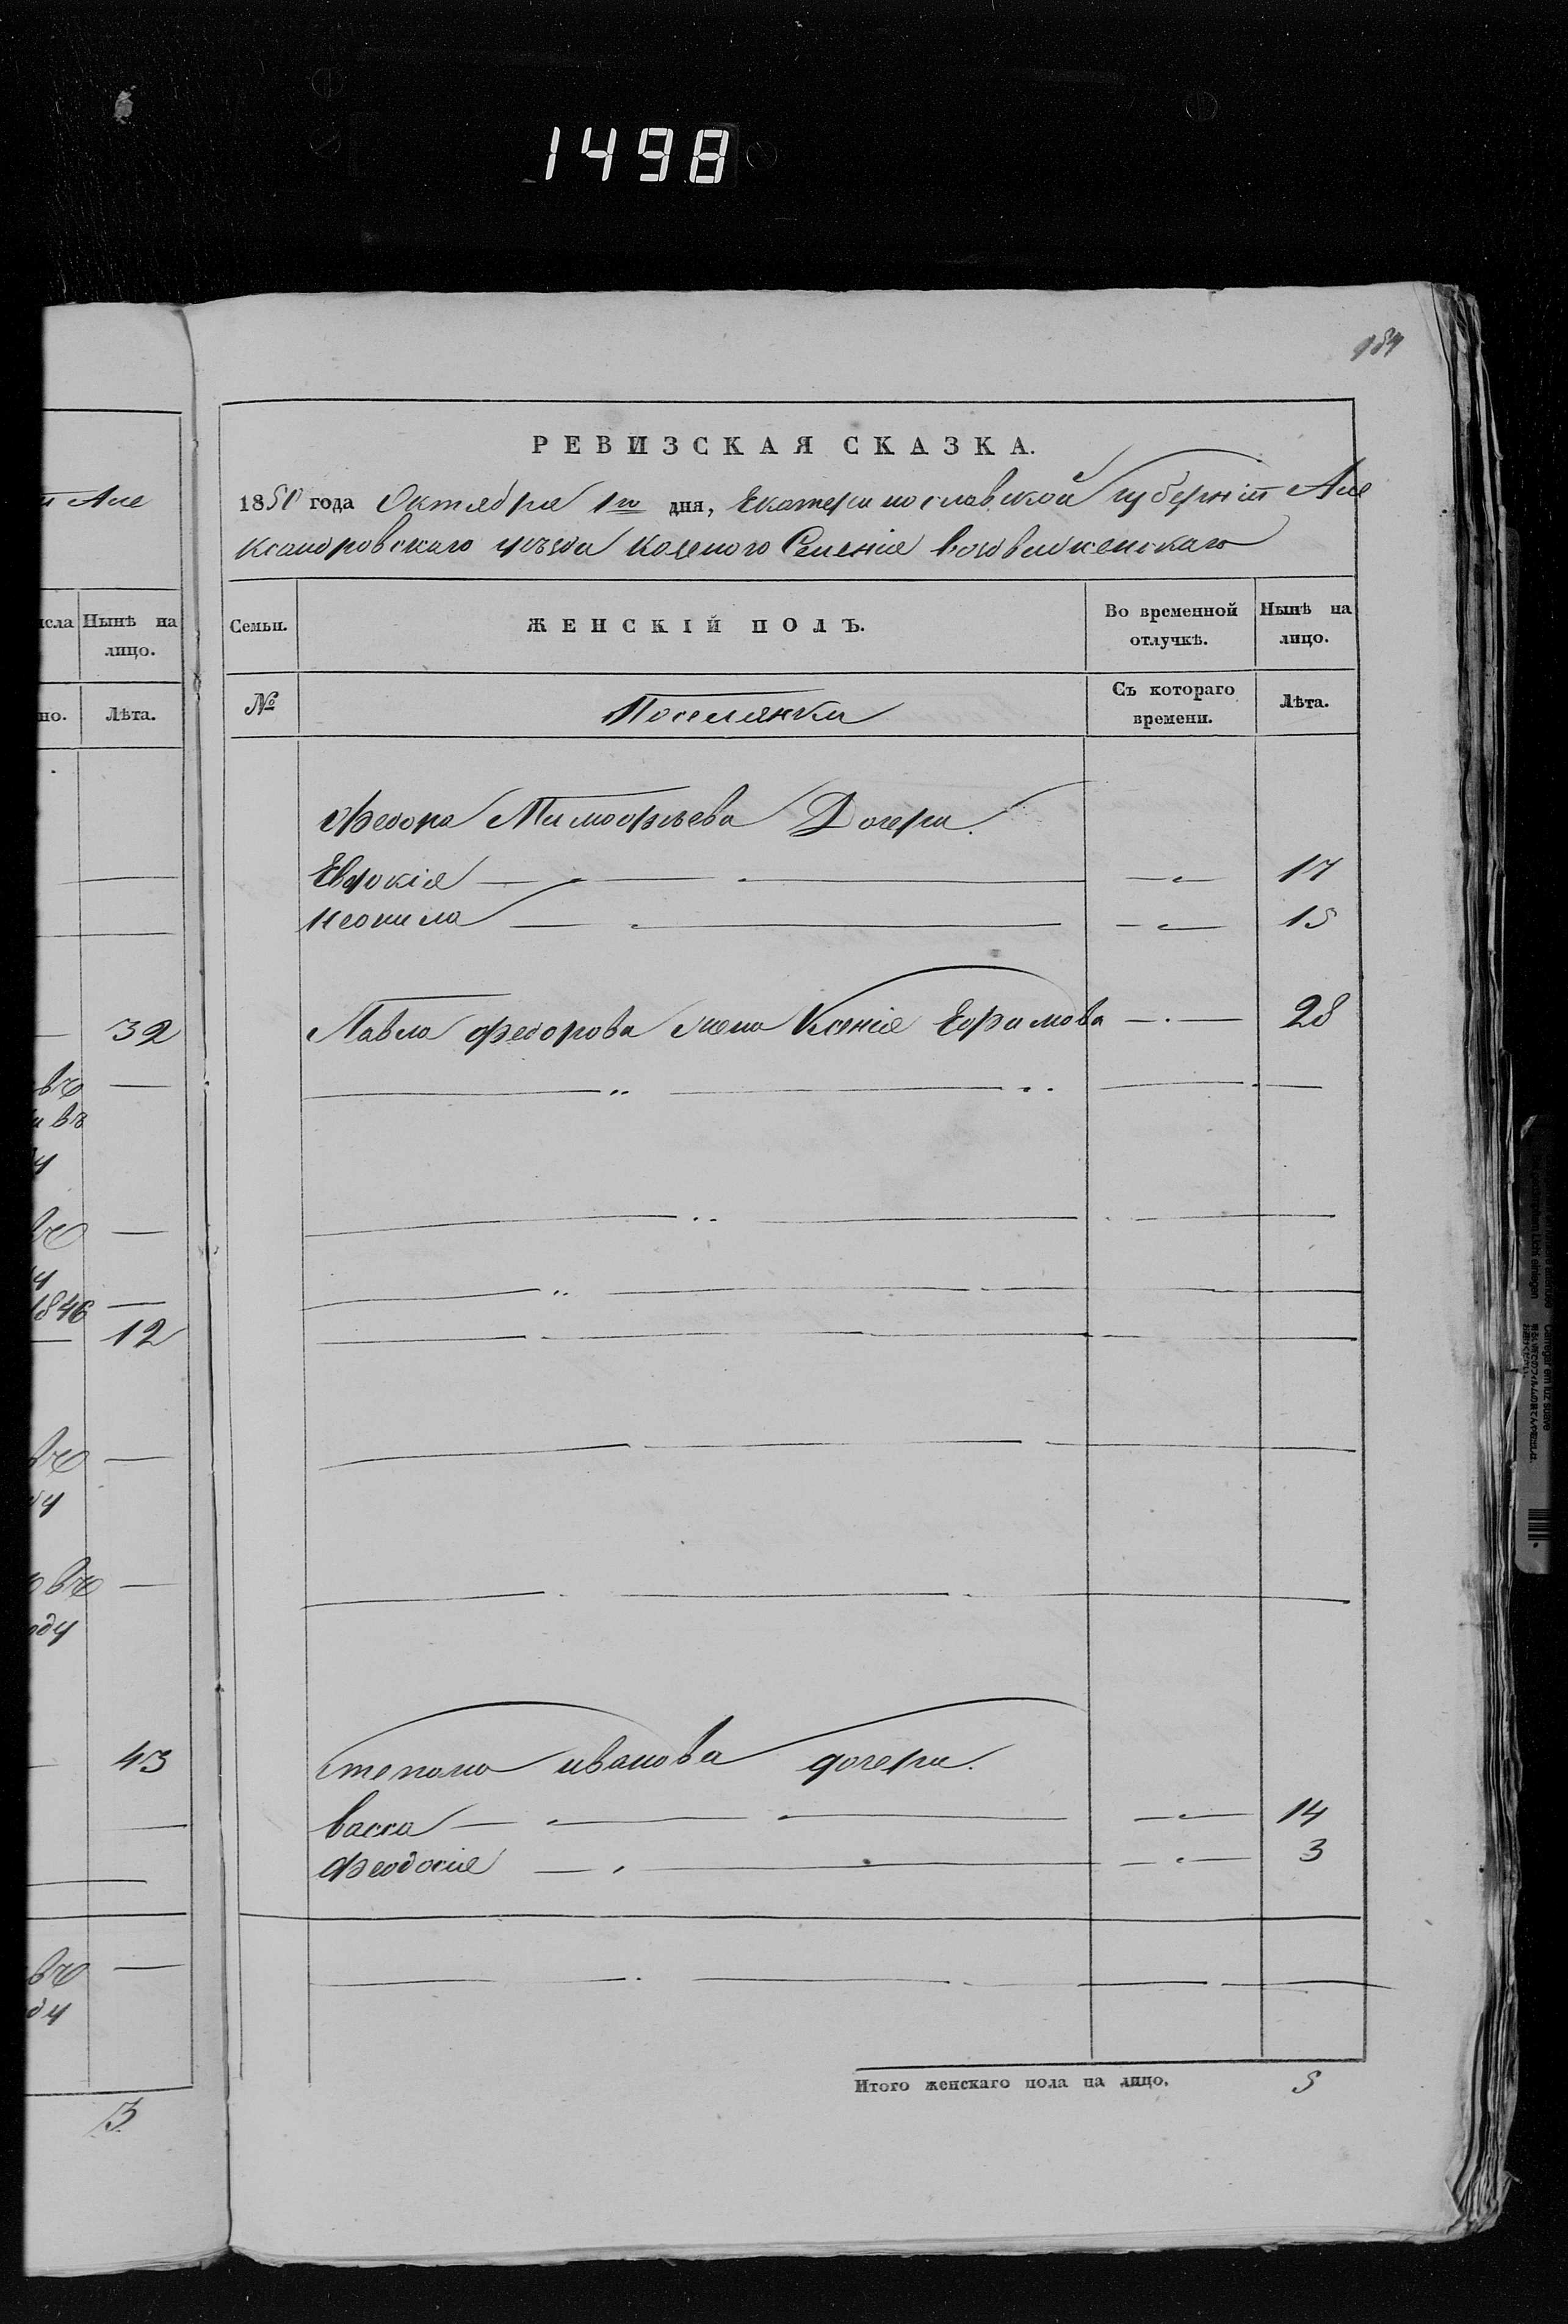 1498
184
РЕВИЗСКАЯ СКАЗКА.
1850 года Октября 1го дня, Екатеринославской губерніи Але
ксандровскаго уѣзда казеного Селенія воздвиженскаго
Семьи.
ЖЕНСКІЙ ПОЛЪ.
Во временной отлучкѣ.
Нынѣ на лицо.
№
Поселянки
Съ котораго времени.
Лѣта.
Федора Тимофѣева Дочери.
Евдокія 17
Неонила 15
Павла Федорова жена Ксенія Ефимова 28
Степана иванова дочери.
васса 14
Феодосія 3
Итого женскаго пола на лицо. 5
и Але
исла
Нынѣ на лицо.
но.
Лѣта.
32
въ
и въ
1846
12
ду
въ
оду
43
въ
ду
3